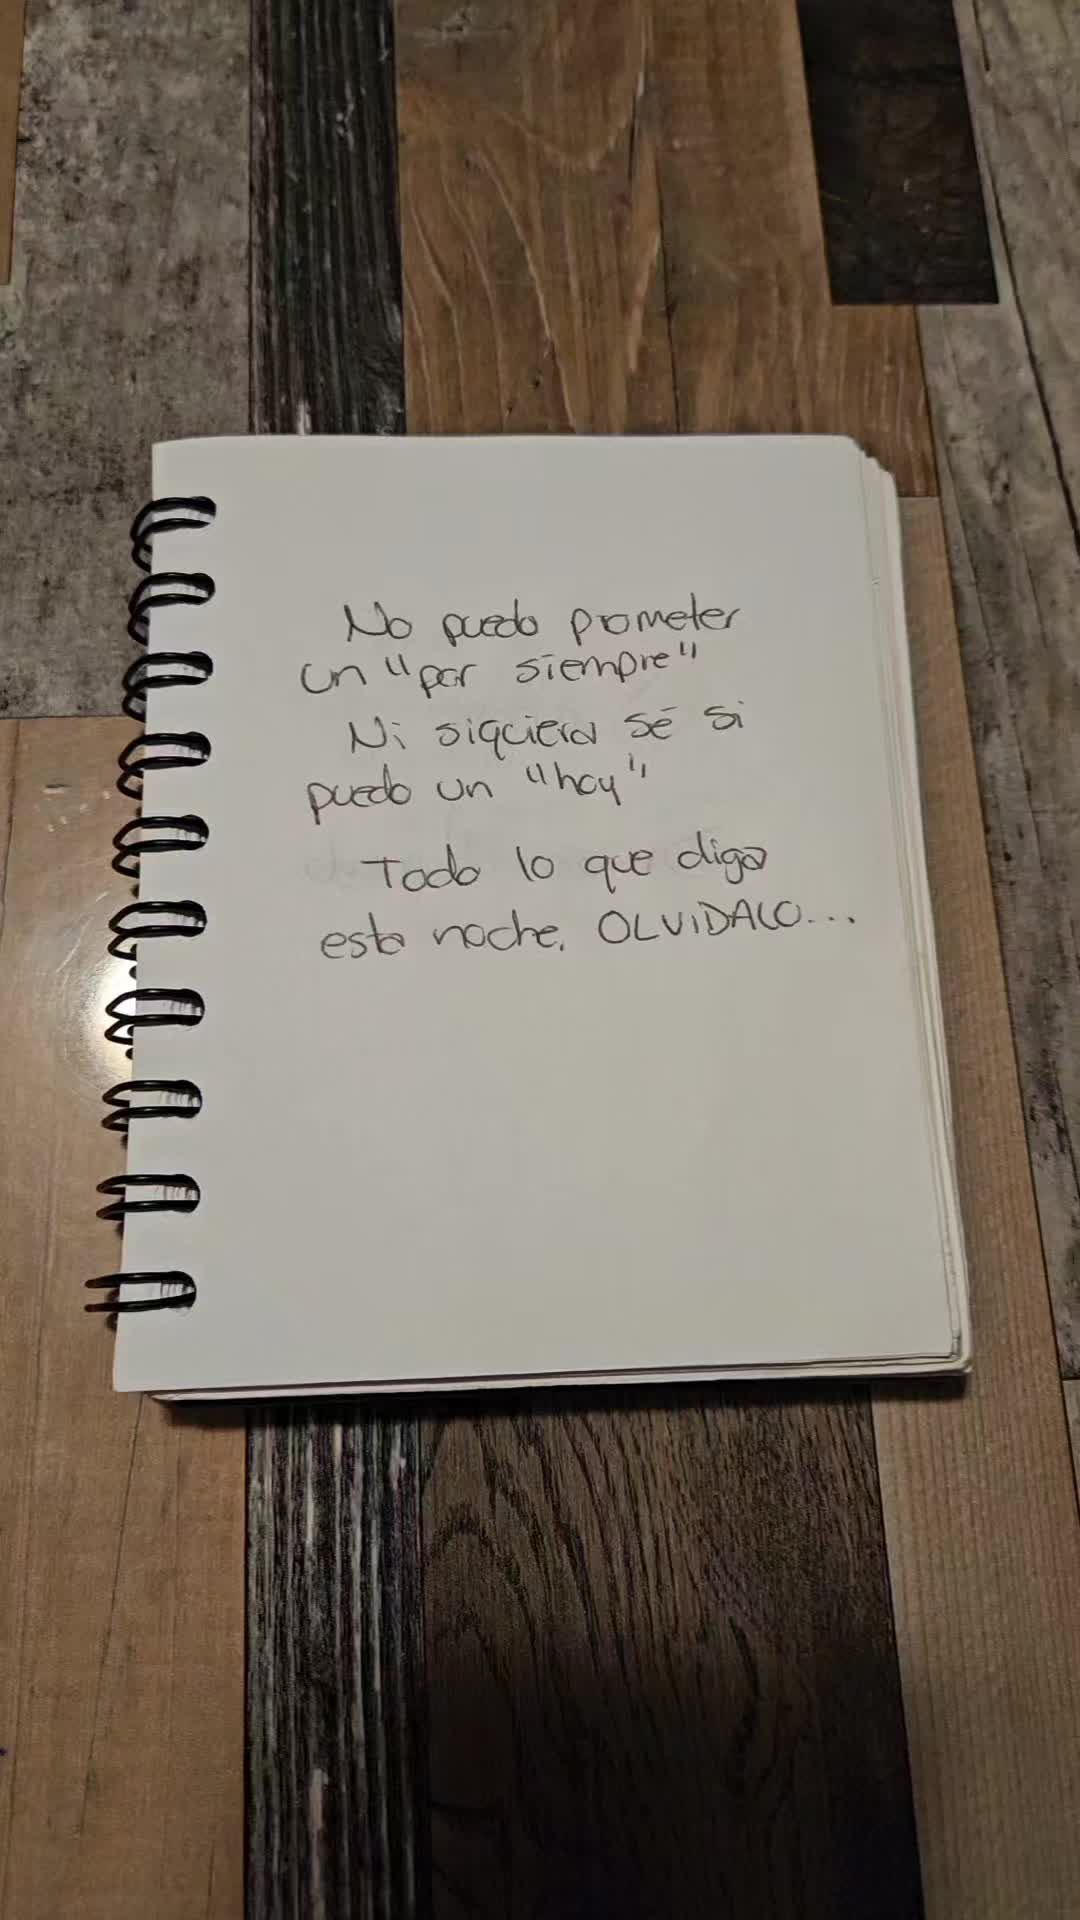 No puedo prometer
un "por siempre"
Ni siquiera sé si
puedo un "hoy"
Todo lo que diga
esta noche, OLVIDALO...